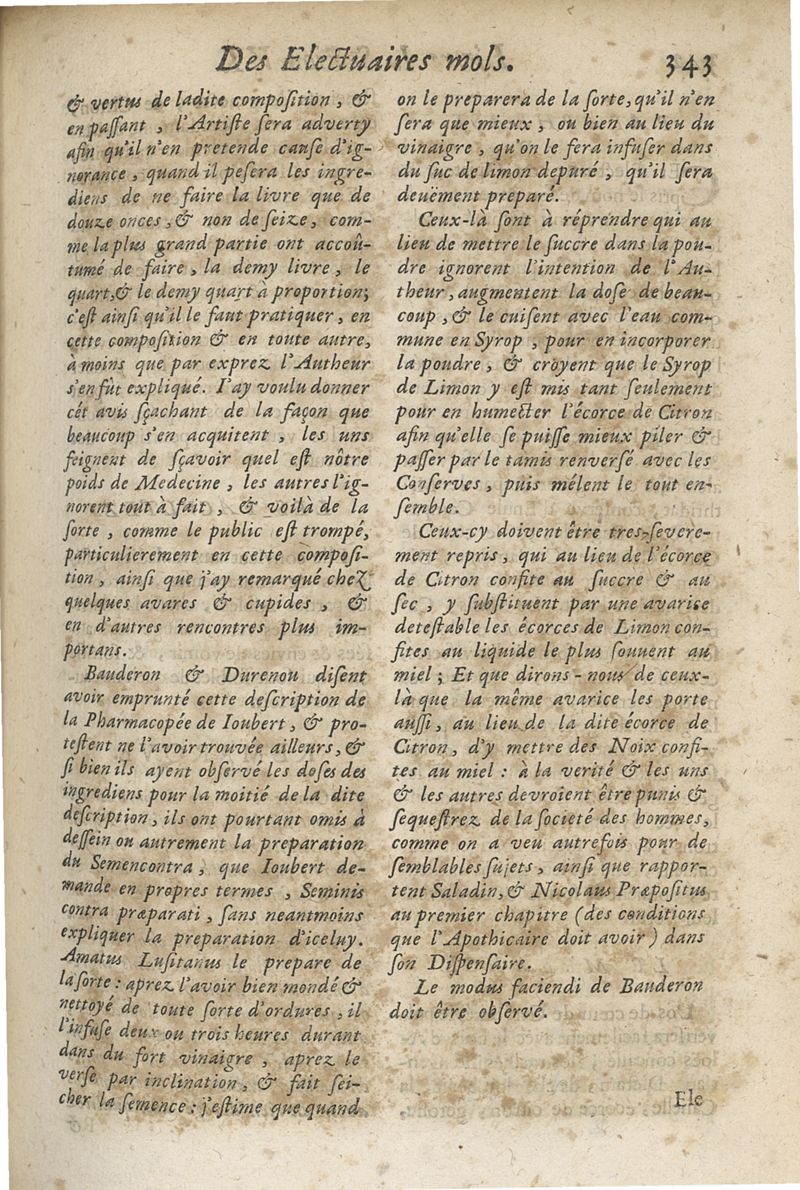 Des Electuaires mols. 343
& vertus de ladite composition, &
en passant, l'Artiste sera adverty
afin qu'il n'en pretende cause d'ig-
norance, quand il pesera les ingre-
diens de ne faire la livre que de
douze onces, & non de seize, com-
me la plus grand partie ont accoû-
tumé de faire, la demy livre, le
quart, & le demy quart à proportion;
c'est ainsi qu'il le faut pratiquer, en
cette composition & en toute autre,
à moins que par exprez l'Autheur
s'en fût expliqué. I'ay voulu donner
cét avis sçachant de la façon que
beaucoup s'en acquitent, les uns
feignent de sçavoir quel est nôtre
poids de Medecine, les autres l'ig-
norent tout à fait, & voilà de la
sorte, comme le public est trompé,
particulierement en cette composi-
tion, ainsi que j'ay remarqué chez
quelques avares & cupides, &
en d'autres rencontres plus im-
portans.
Bauderon & Durenou disent
avoir emprunté cette description de
la Pharmacopée de Ioubert, & pro-
testent ne l'avoir trouvée ailleurs, &
si bien ils ayent observé les doses des
ingrediens pour la moitié de la dite
description, ils ont pourtant omis à
dessein ou autrement la preparation
du Semencontra, que Ioubert de-
mande en propres termes, Seminis
contra præparati, sans neantmoins
expliquer la preparation d'iceluy.
Amatus Lusitanus le prepare de
la sorte: aprez l'avoir bien mondé &
nettoyé de toute sorte d'ordures, il
l'infuse deux ou trois heures durant
dans du fort vinaigre, aprez le
verse par inclination, & fait sei-
cher la semence: j'estime que quand
on le preparera de la sorte, qu'il n'en
sera que mieux, ou bien au lieu du
vinaigre, qu'on le fera infuser dans
du suc de limon depuré, qu'il sera
deuëment preparé.
Ceux-là sont à réprendre qui au
lieu de mettre le succre dans la pou-
dre ignorent l'intention de l'Au-
theur, augmentent la dose de beau-
coup, & le cuisent avec l'eau com-
mune en Syrop, pour en incorporer
la poudre, & croyent que le Syrop
de Limon y est mis tant seulement
pour en humecter l'écorce de Citron
afin qu'elle se puisse mieux piler &
passer par le tamis renversé avec les
Conserves, puis mélent le tout en-
semble.
Ceux-cy doivent être tres-severe-
ment repris, qui au lieu de l'écorce
de Citron confite au succre & au
sec, y substituent par une avarice
detestable les écorces de Limon con-
fites au liquide le plus souuent au
miel; Et que dirons-nous de ceux-
là que la même avarice les porte
aussi, au lieu de la dite écorce de
Citron, d'y mettre des Noix confi-
tes au miel: à la verité & les uns
& les autres devroient être punis &
sequestrez de la societé des hommes,
comme on a veu autrefois pour de
semblables sujets, ainsi que rappor-
tent Saladin, & Nicolaus Præpositus
au premier chapitre (des conditions
que l'Apothicaire doit avoir) dans
son Dispensaire.
Le modus faciendi de Bauderon
doit être observé.
Ele